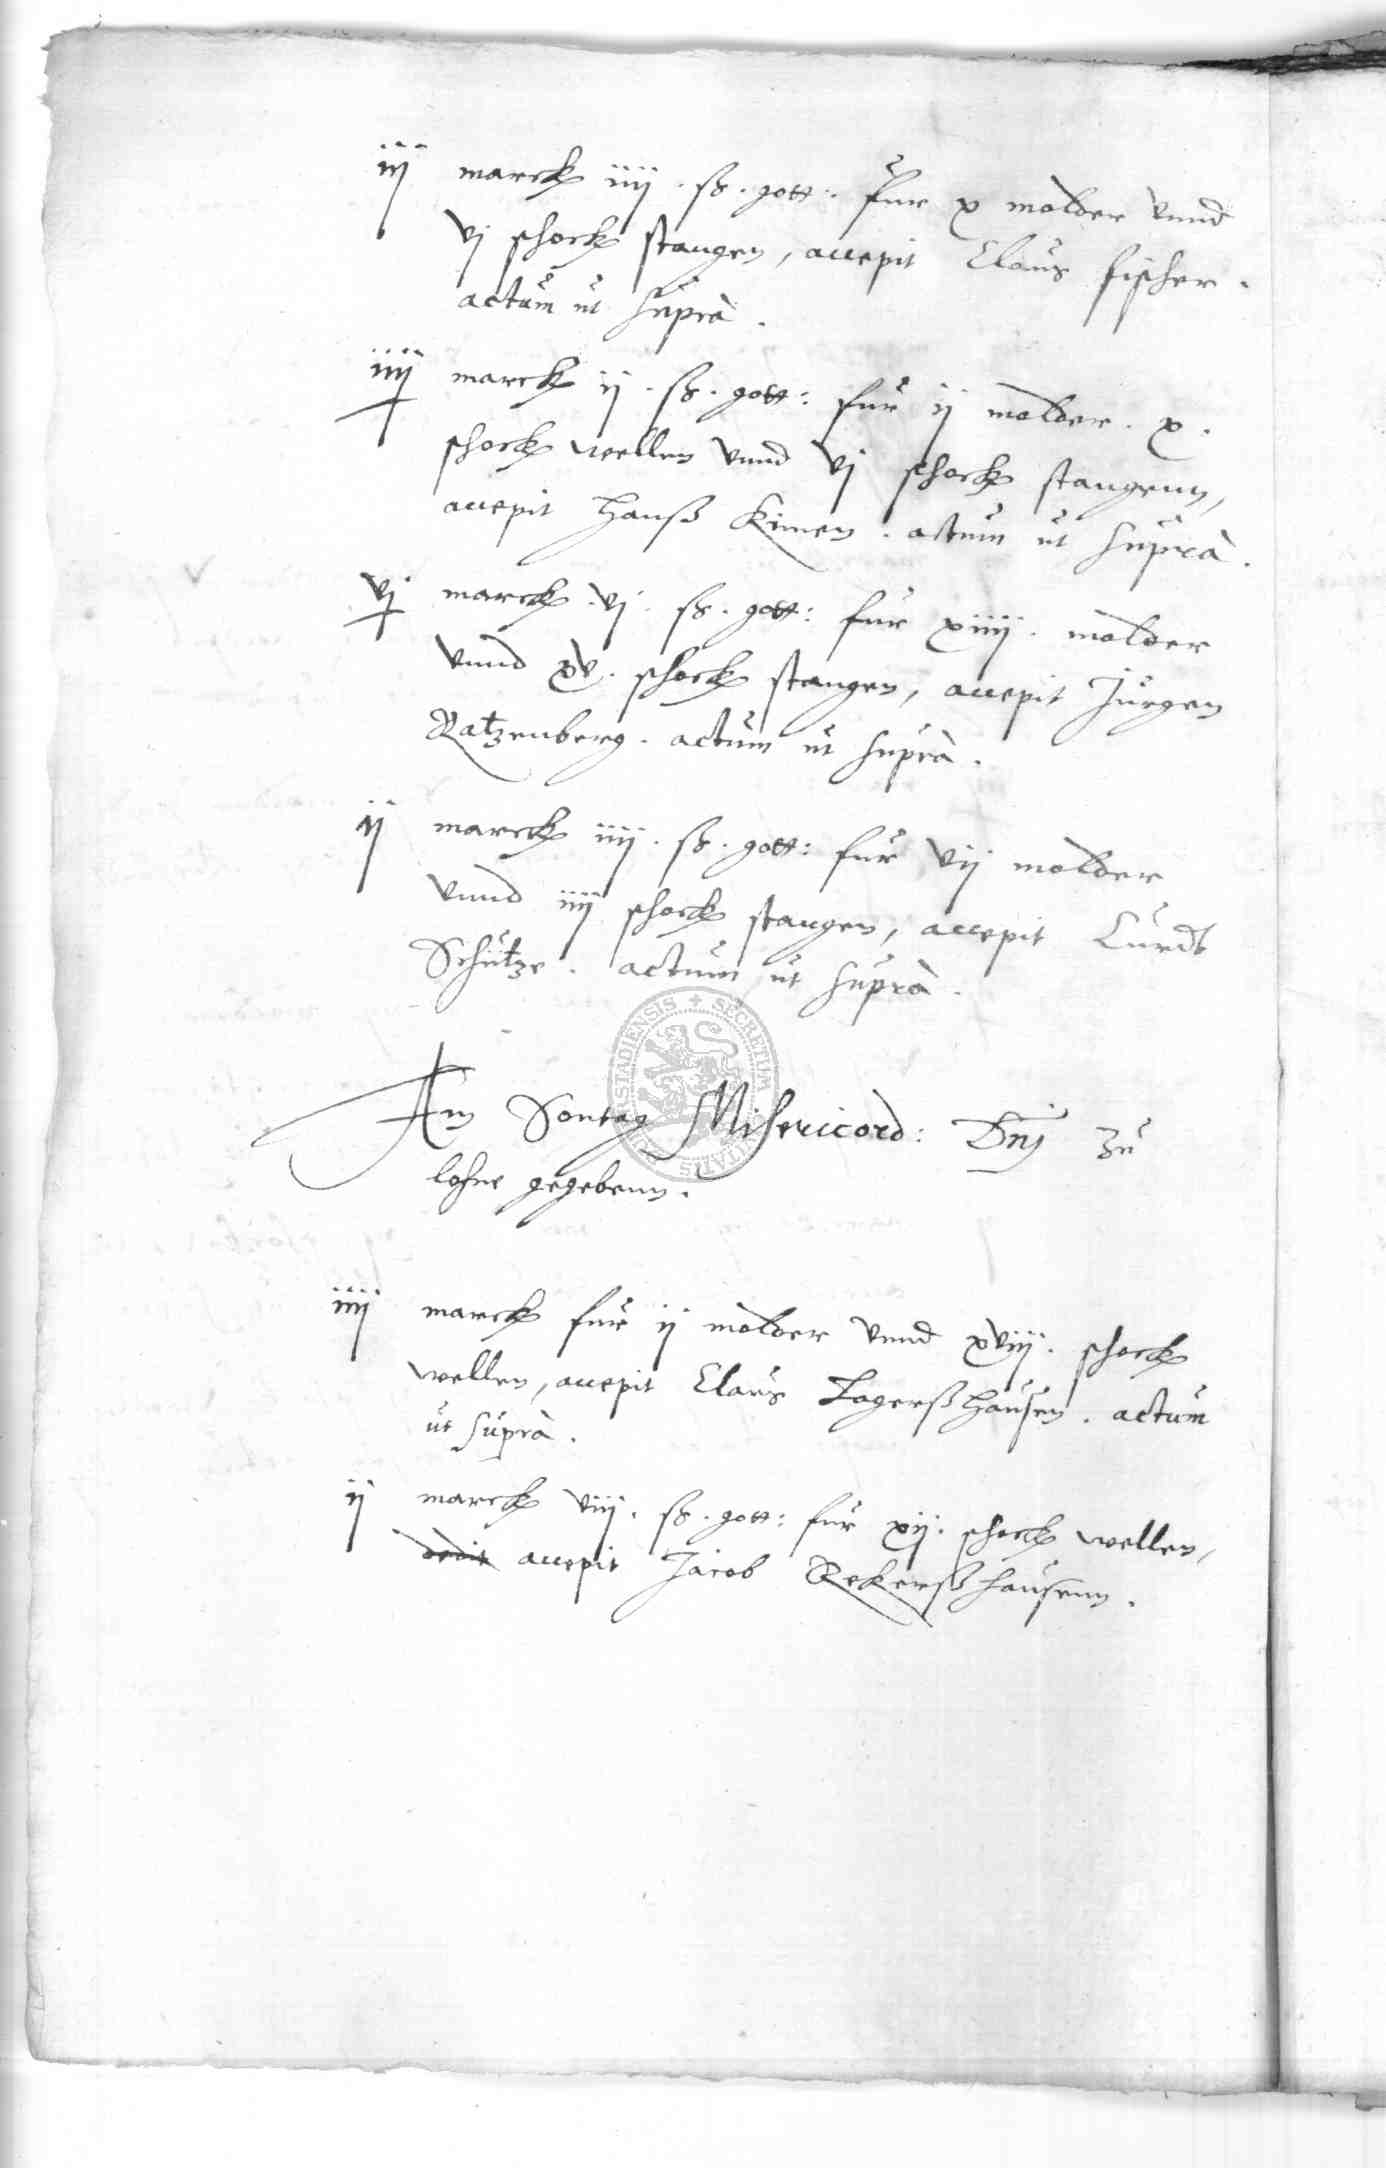 iij marck iiij . ß . gott: fur x molder vnnd
vj schock stangen, accepit Claus fischer .
actum ut supra .
iiij marck ij . ß . gott: fur ij molder . x .
schock wellen vnnd vj schock stangenn,
accepit Hanß Kimen . actum ut supra .
vj marck . vj . ß . gott: fur xiiij . molder
vnnd xv . schock stangen, accepit Jurgen
Ratzenberg . actum ut supra .
ij marck iiij . ß . gott: fur vij molder
vnnd iiij schock stangen, accepit Curdt
Schutze . actum ut supra .
Am Sontag Misericord: Dnj zu
lohne gegebenn .
iiij marck fur ij molder vnnd xviij . schock
wellen, accepit Claus Lagerßhausen . actum
ut supra .
ij marck viij . ß . gott: fur xij . schock wellen,
dedit accepit Jacob Rekerßhausenn .
SECRETUM